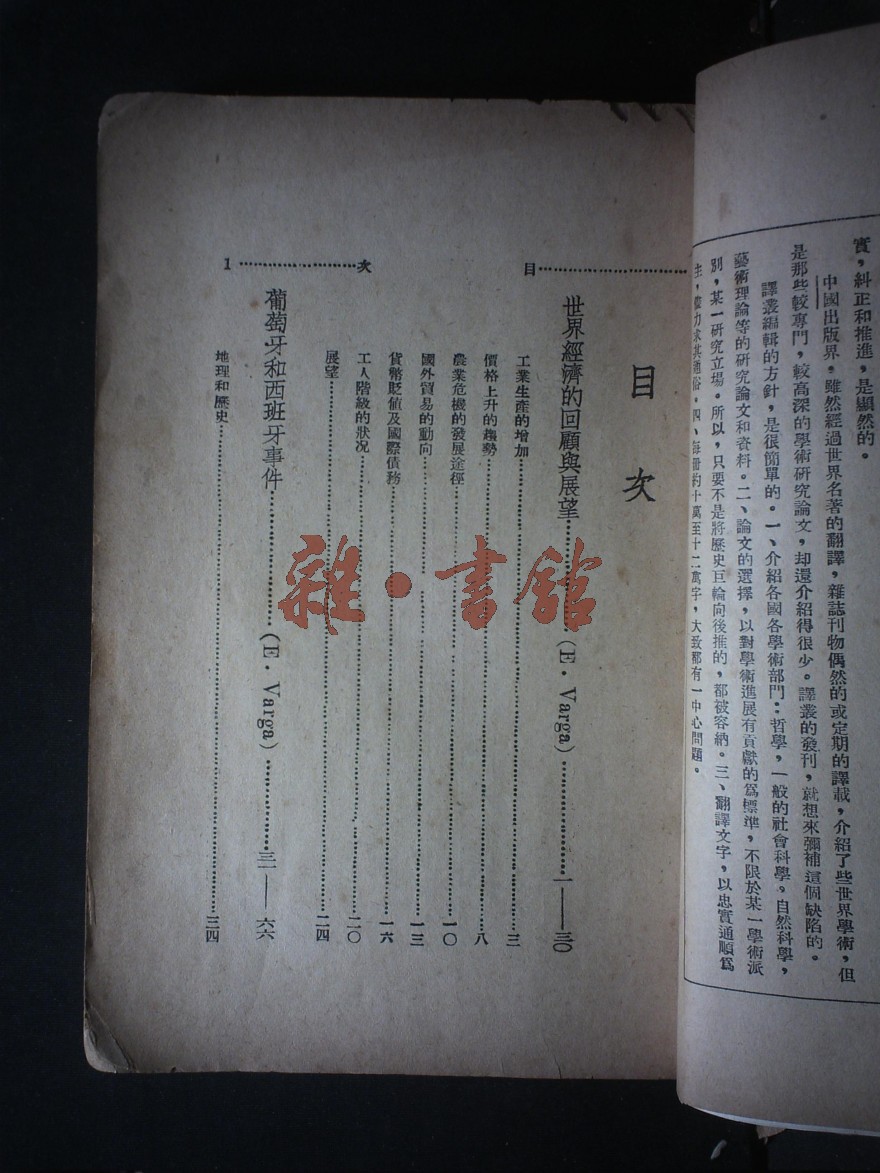 實，糾正和推進，是顯然的。
中國出版界，雖然經過世界名著的翻譯，雜誌刊物偶然的或定期的譯載，介紹了些世界學術，但
是那些較專門，較高深的學術研究論文，却還介紹得很少。譯叢的發刊，就想來彌補這個缺陷的。
譯叢編輯的方針，是很簡單的。一、介紹各國各學術部門：哲學，一般的社會科學。自然科學，
藝術理論等的研究論文和資料。二、論文的選擇，以對學術進展有貢獻的爲標準，不限於某一學術派
別，某一研究立場。所以，只要不是將歷史巨輪向後推的，都被容納。三、翻譯文字，以忠實通順爲
主，儘力求其通俗。四、每冊約十萬至十二萬字，大致都有一中心問題。
目次
目………………次………………1
世界經濟的回顧與展望………………（E．Varga）………………一——三〇
工業生產的增加………………三
價格上升的趨勢………………八
農業危機的發展途徑………………一〇
國外貿易的動向………………一三
貨幣貶值及國際債務………………一六
工人階級的狀况………………二〇
展望………………二四
葡萄牙和西班牙事件………………（E．Varga）………………三一——六六
地理和歷史………………三四
雜・書館